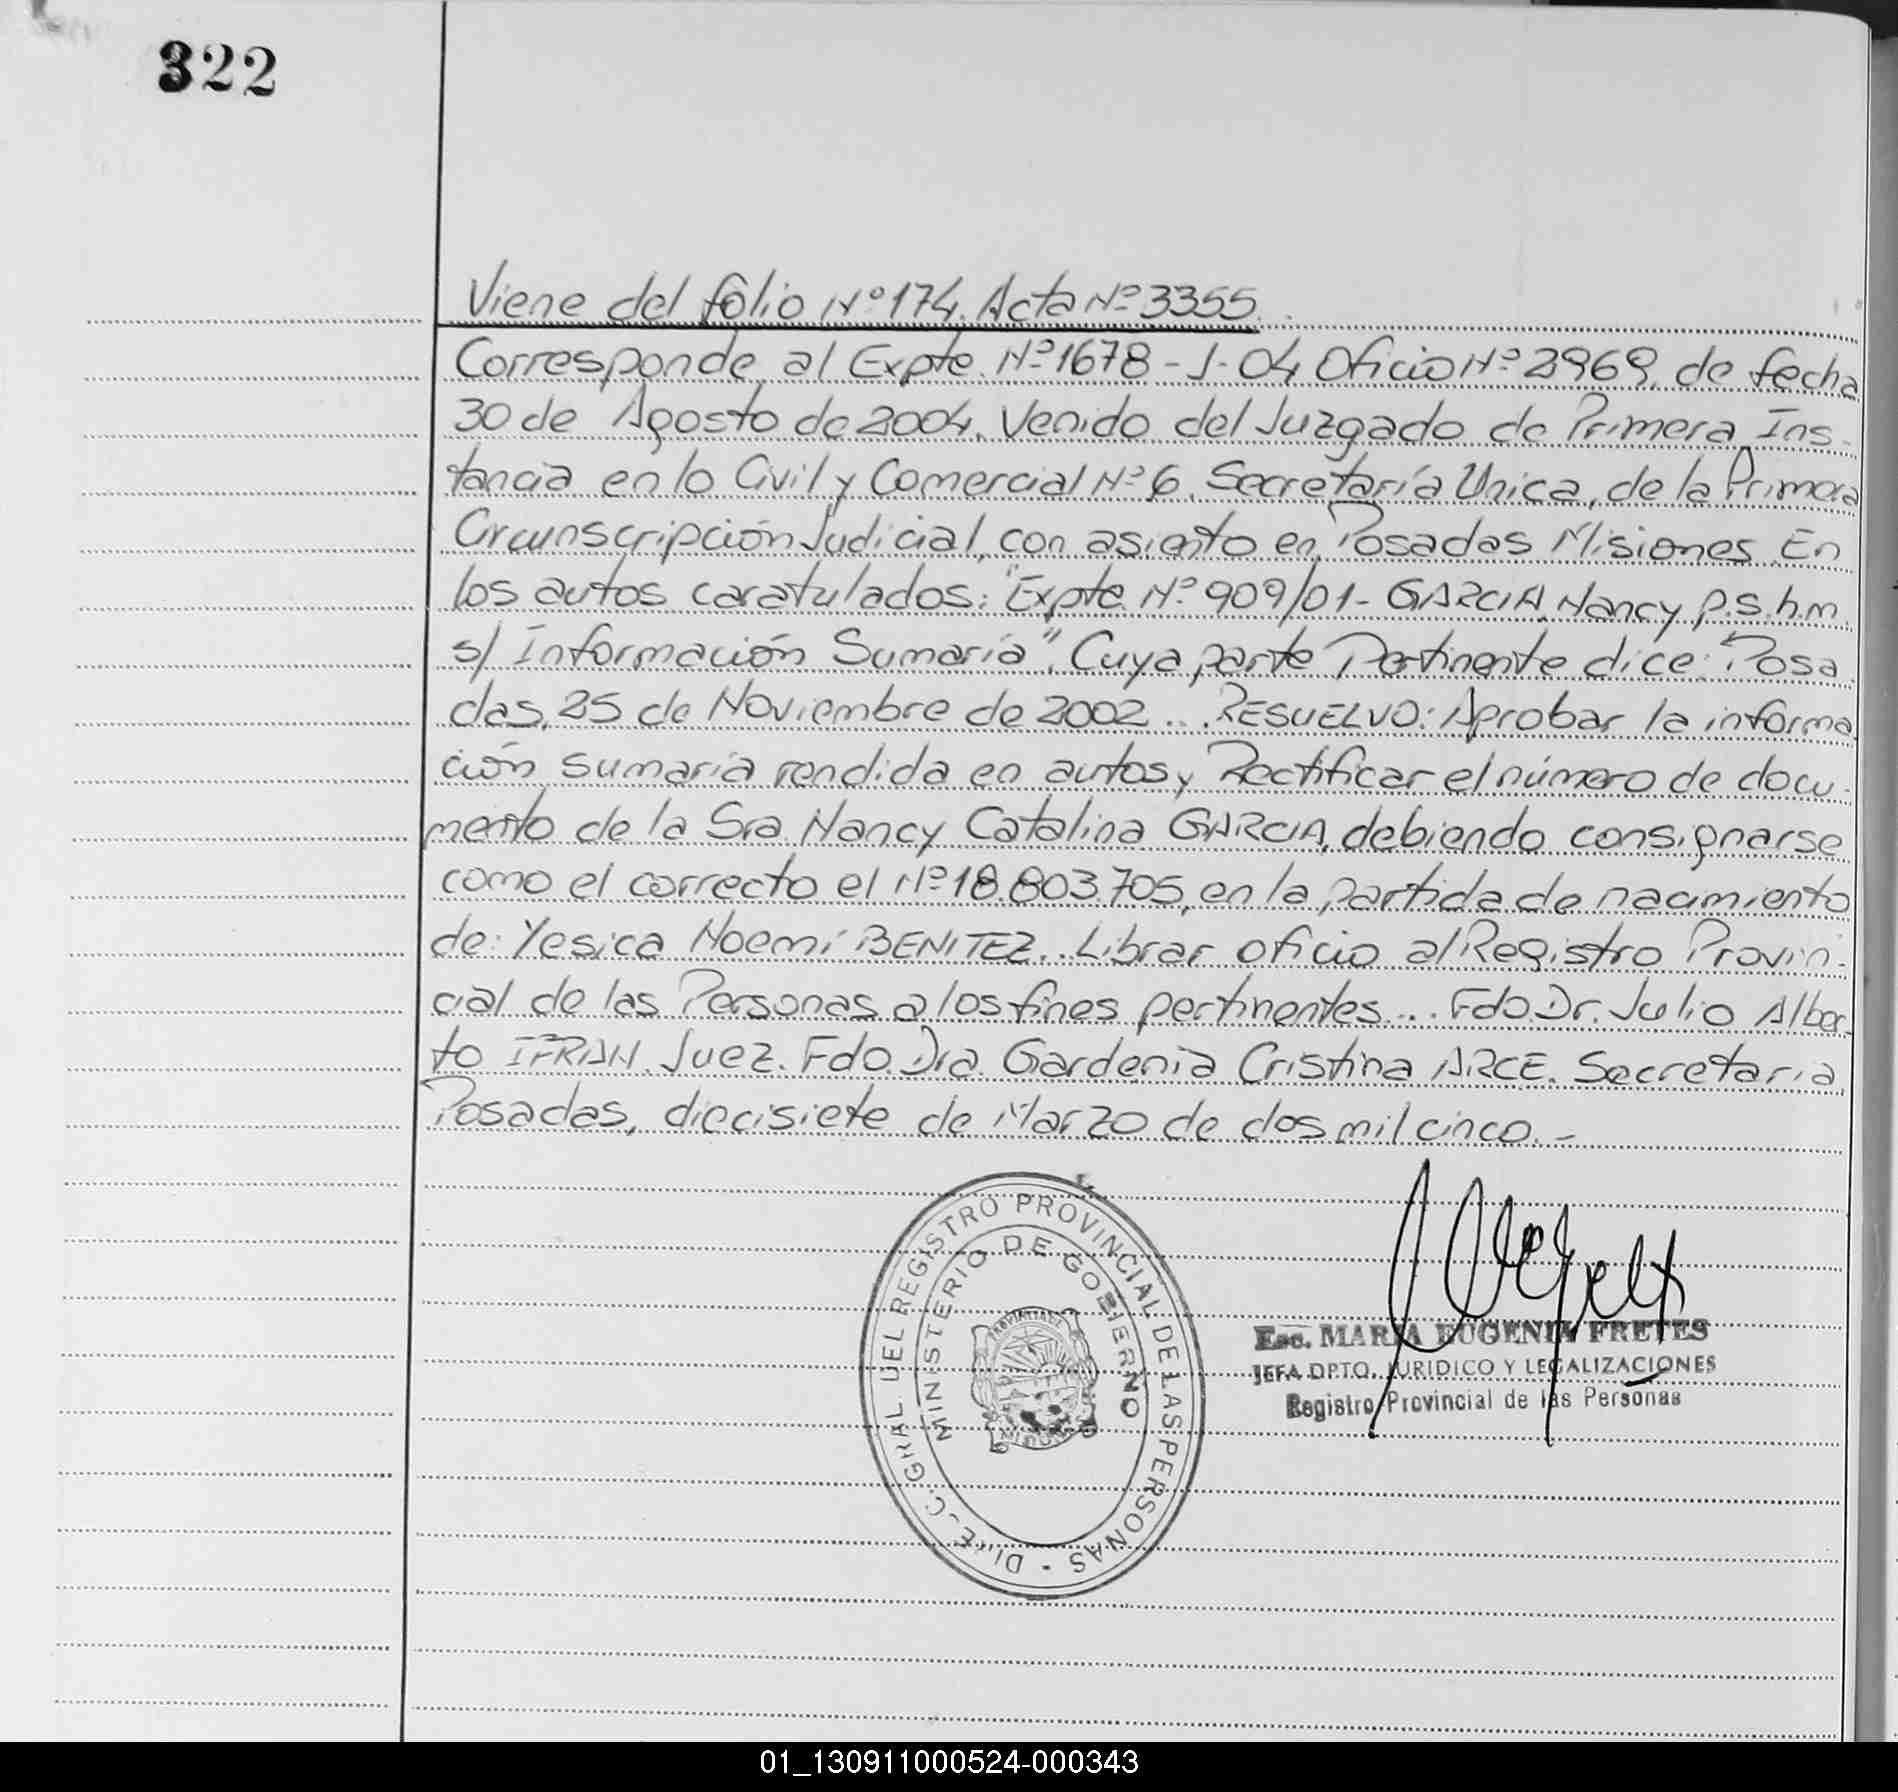 322
Viene del folio Nº 174. Acta Nº 3355.
Corresponde al Expte. Nº 1678 - J - 04 Oficio Nº 2969, de fecha
30 de Agosto de 2004. Venido del Juzgado de Primera Ins-
tancia en lo Civil y Comercial Nº 6. Secretaría Unica, de la Primera
Circunscripción Judicial, con asiento en Posadas Misiones. En
los autos caratulados: "Expte. Nº 909/01 - GARCIA, Nancy p.s.h.m.
s/ Información Sumaria". Cuya parte Pertinente dice: Posa
das, 25 de Noviembre de 2002... RESUELVO: Aprobar la informa
ción sumaria rendida en autos y Rectificar el número de docu-
mento de la Sra. Nancy Catalina GARCIA, debiendo consignarse
como el correcto el Nº 18.803.705, en la partida de nacimiento
de: Yesica Noemí BENITEZ... Librar oficio al Registro Provin-
cial de las Personas a los fines pertinentes... Fdo. Dr. Julio Alber-
to IFRAN. Juez. Fdo. Dra. Gardenia Cristina ARCE. Secretaria.
Posadas, diecisiete de Marzo de dos mil cinco.-
GRAL DEL REGISTRO PROVINCIAL DE LAS PERSONAS
MINISTERIO DE GOBIERNO
Esc. MARIA EUGENIA FRETES
JEFA DPTO. JURIDICO Y LEGALIZACIONES
Registro Provincial de las Personas
01_130911000524-000343